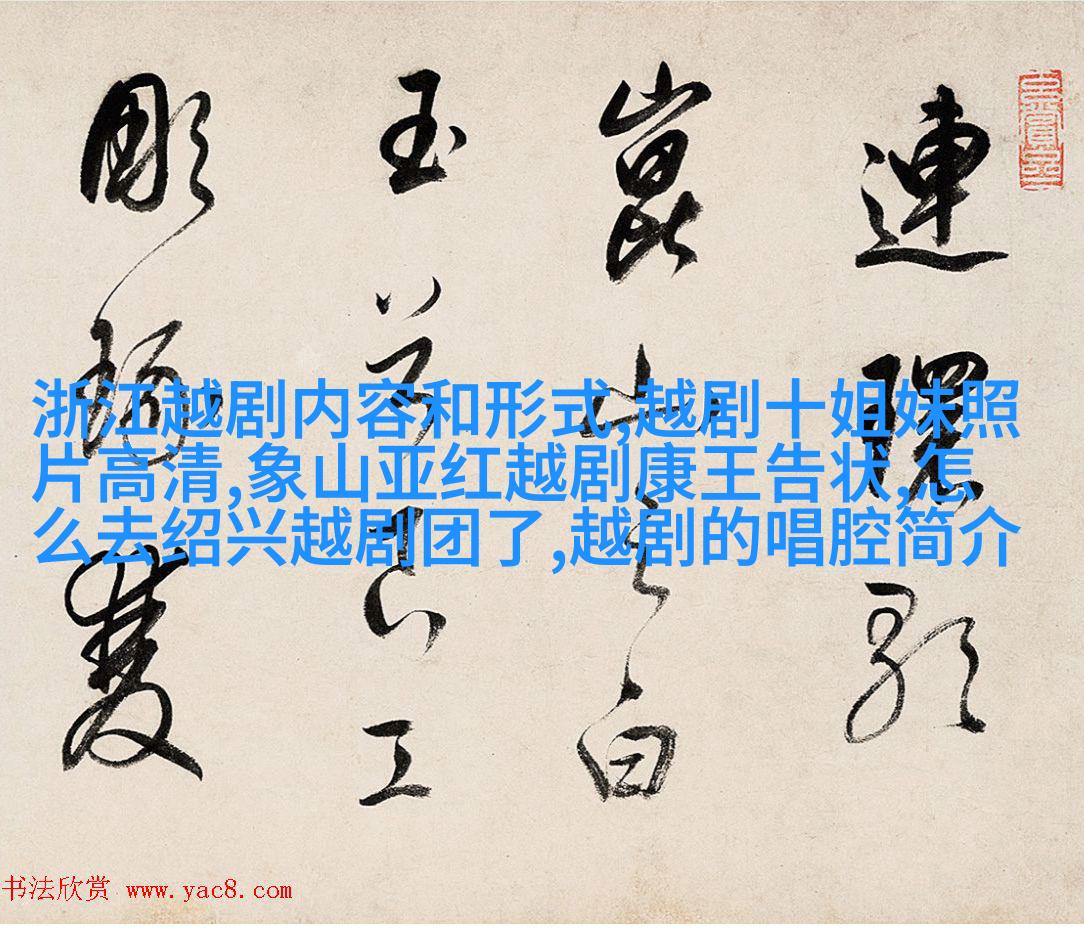 連環歌
崑山之白
玉兮工
彫琢雙
浙江越剧内容和形式,越剧十姐妹照
片高清,象山亚红越剧康王告状,怎
么去绍兴越剧团了,越剧的唱腔简介
书法欣赏 www.yac8.com